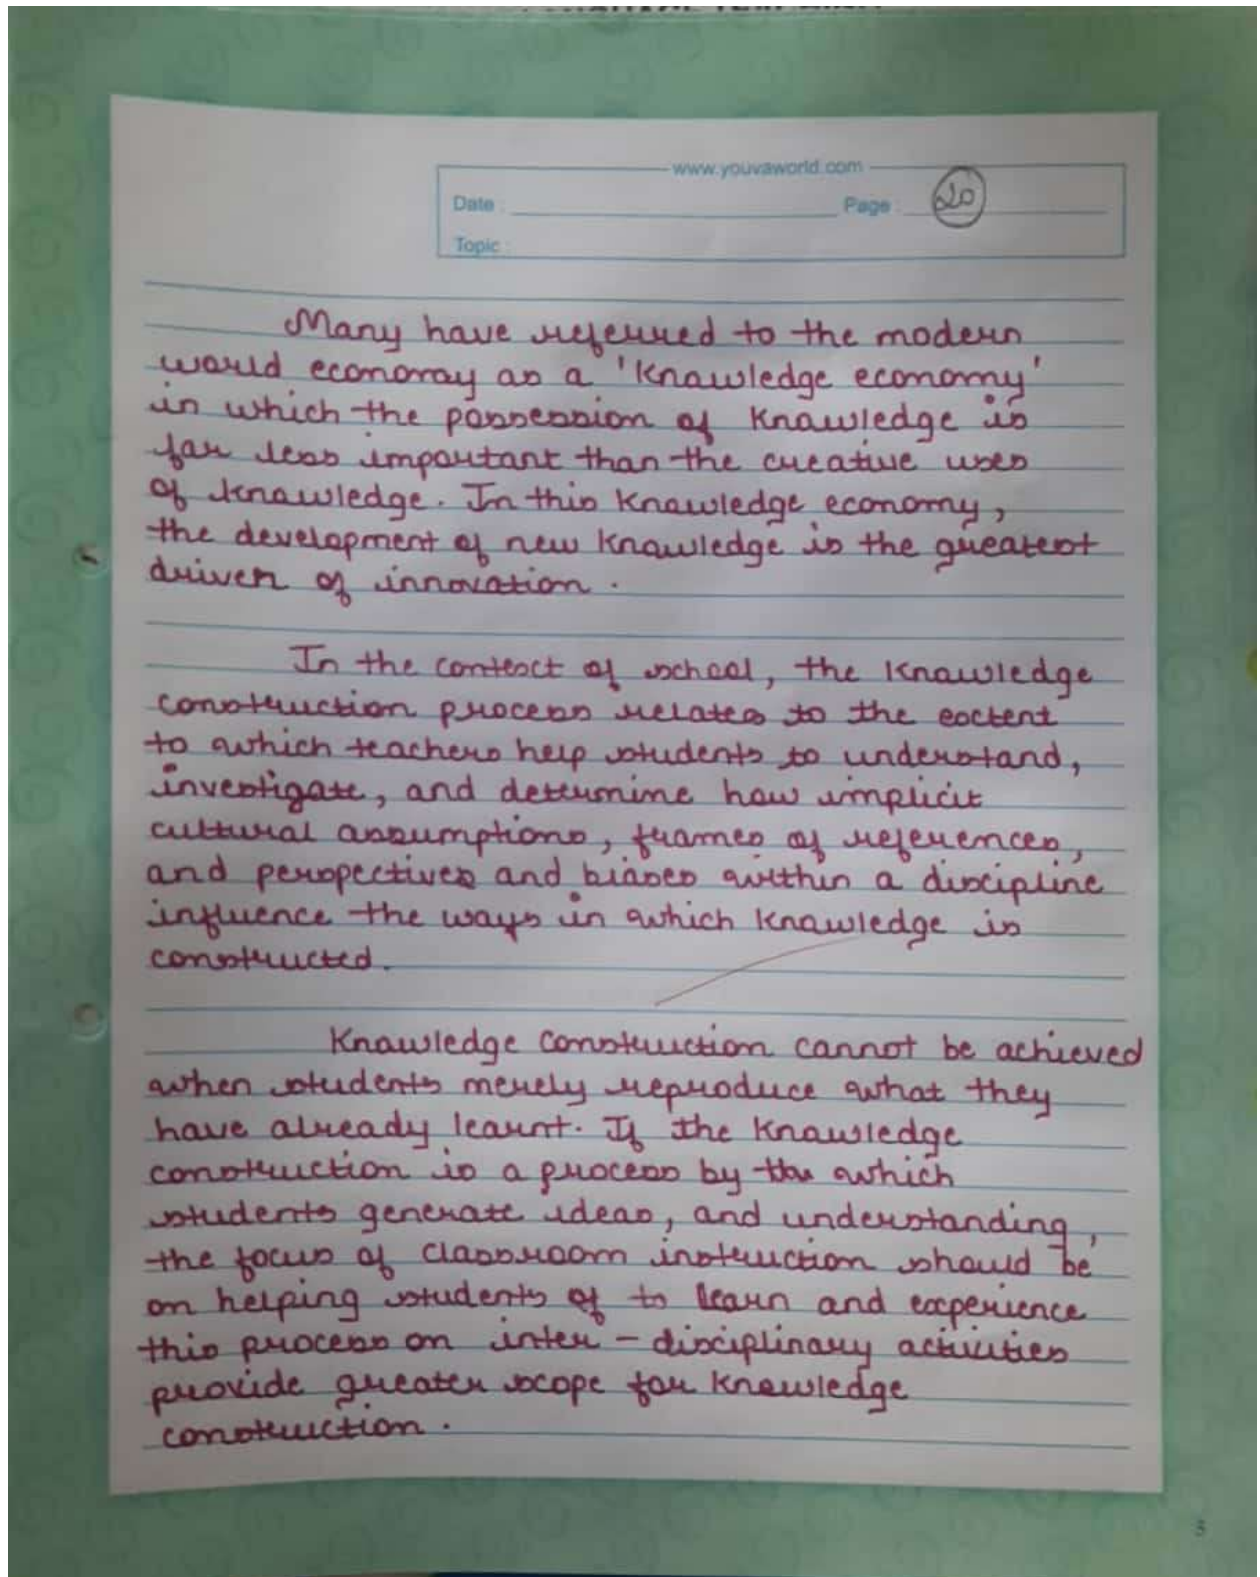 www.youvaworld.com
Date : Page : 20
Topic :
Many have referred to the modern
world economy as a 'Knowledge economy'
in which the possession of Knowledge is
far less important than the creative uses
of knowledge. In this Knowledge economy,
the development of new Knowledge is the greatest
driver of innovation.
In the context of school, the Knowledge
construction process relates to the extent
to which teachers help students to understand,
investigate, and determine how implicit
cultural assumptions, frames of references,
and perspectives and biases within a discipline
influence the ways in which Knowledge is
constructed.
Knowledge Construction cannot be achieved
when students merely reproduce what they
have already learnt. If the Knowledge
construction is a process by the which
students generate ideas, and understanding,
the focus of classroom instruction should be
on helping students of to learn and experience
this process on inter - disciplinary activities
provide greater scope for Knowledge
construction.
3